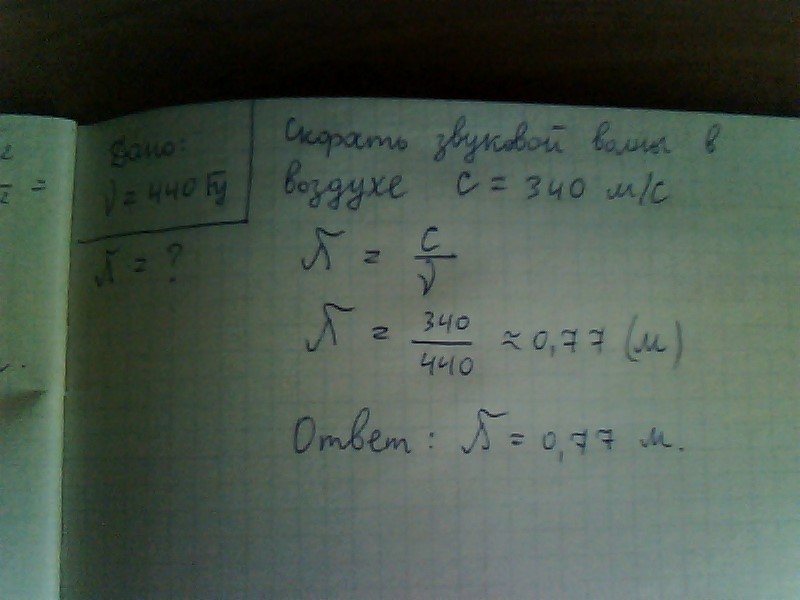 Дано:
ν = 440 Гц
λ = ?
Скорать звуковой волны в
воздухе c = 340 м/с
λ = c/ν
λ = 340/440 ≈ 0,77 (м)
Ответ: λ = 0,77 м.